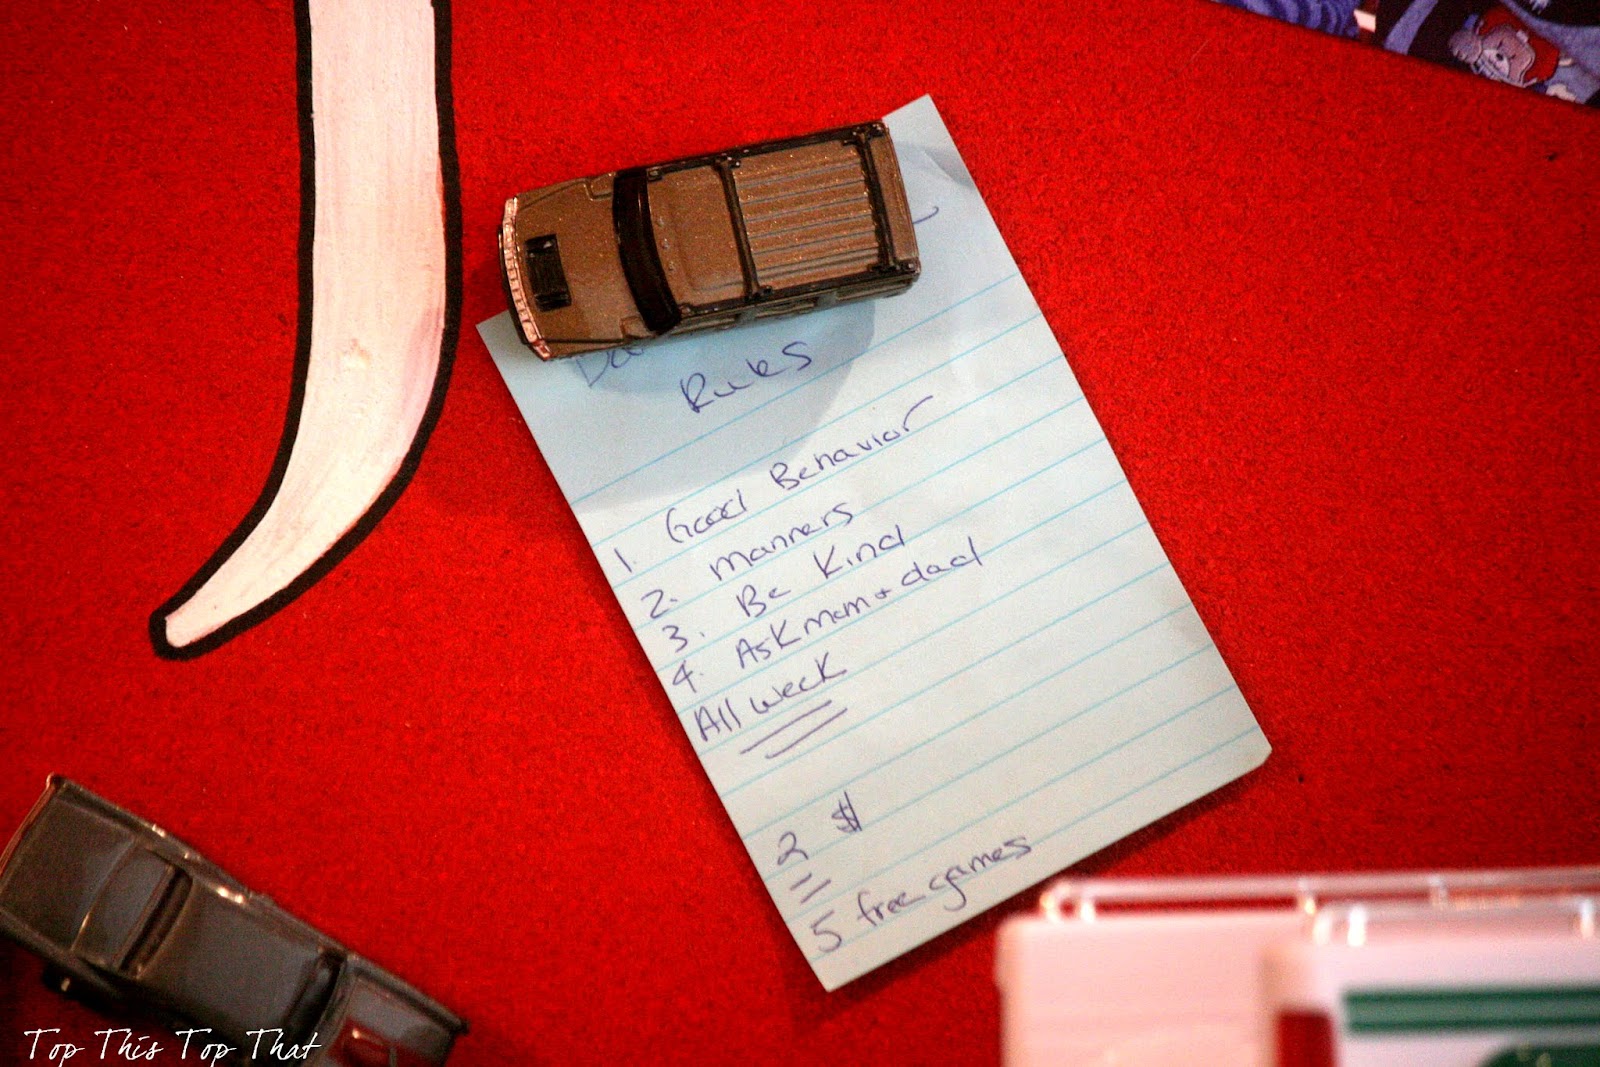 Rules
1. Good Behavior
2. manners
3. Be Kind
4. Ask mom + dad
All week
2 $
5 free games
Top This Top That